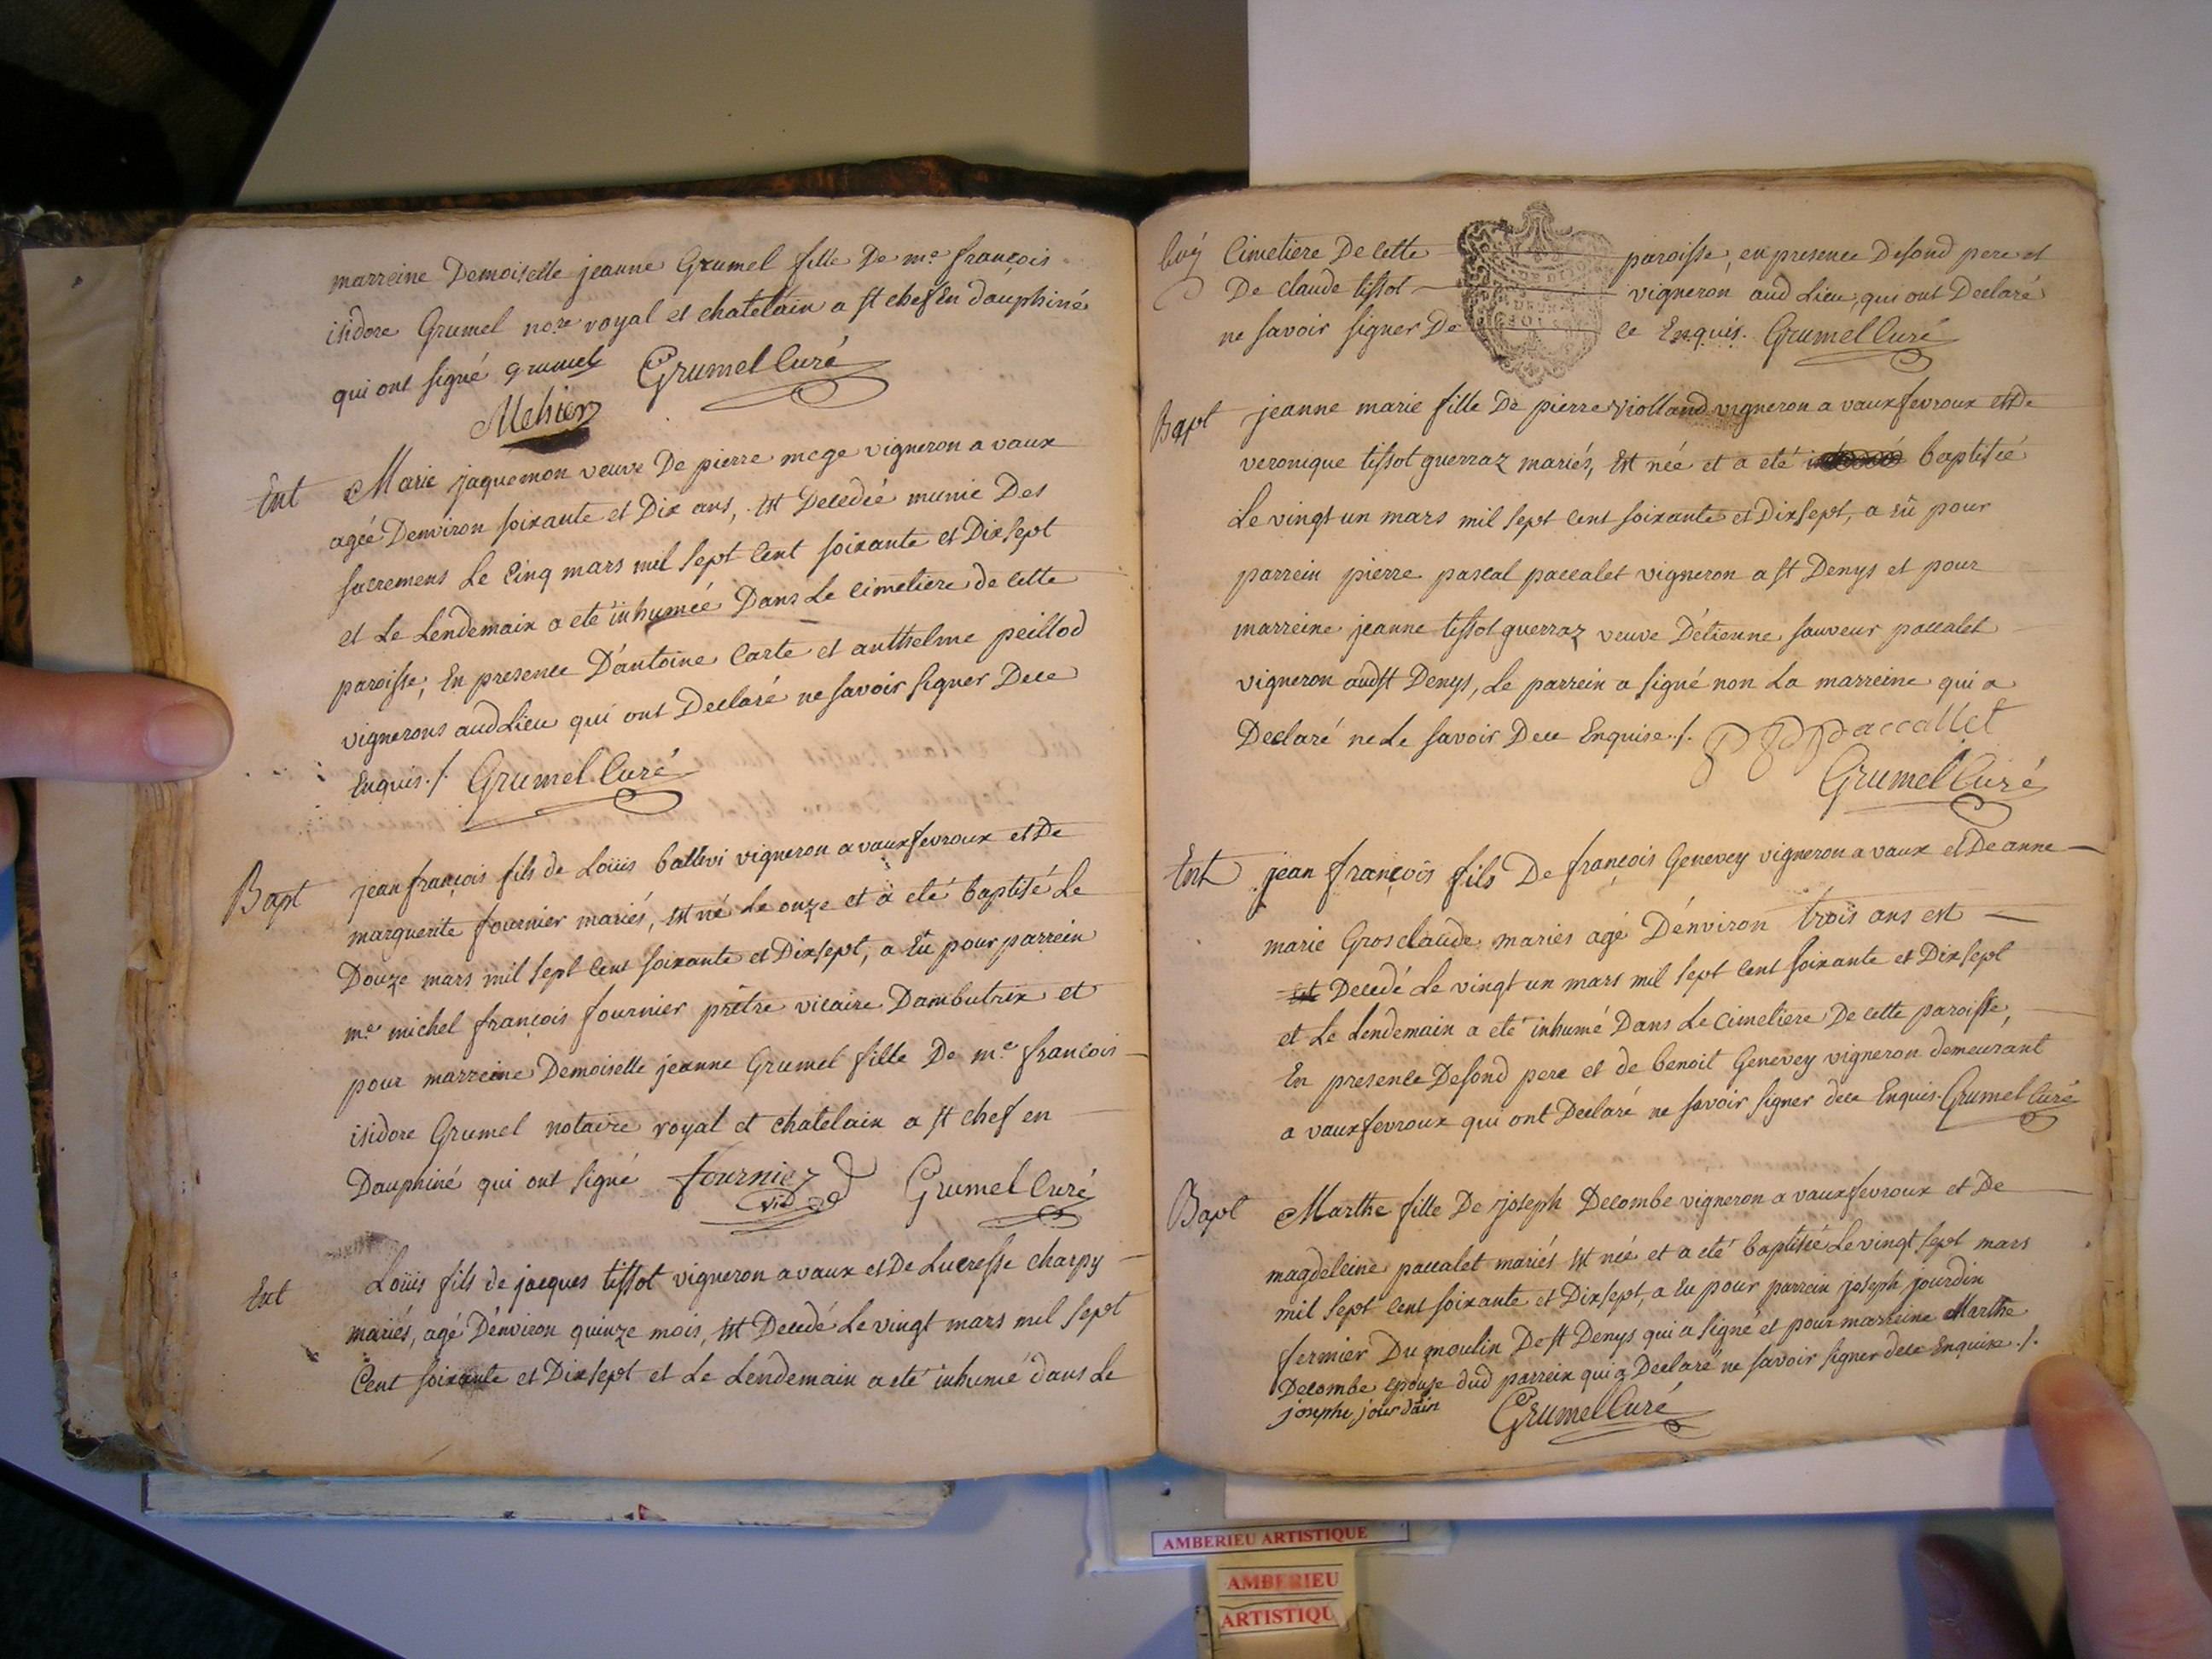 marreine Demoiselle jeanne Grumel fille De me françois
isidore Grumel nore royal et chatelain a st chef En dauphiné
qui ont signé grumel Grumel Curé
Mehier
Ent Marie jaquemon veuve De pierre mege vigneron a vaux
agée Denviron soixante et Dix ans, Est Decedée munie Des
sacremens Le Cinq mars mil sept Cent soixante et Dix sept
et Le Lendemain a eté inhumée Dans Le cimetiere de cette
paroisse, En presence D'antoine Carte et anthelme peillod
vignerons aud Lieu qui ont Declaré ne savoir signer Dece
Enquis./. Grumel Curé
Bapt jean françois fils de Loüis ballivi vigneron a vauxfevroux et De
marguerite fournier mariés, Est né Le onze et a eté baptisé Le
Douze mars mil sept Cent soixante et Dixsept, a Eu pour parrein
me michel françois fournier prêtre vicaire Dambutrix et
pour marreine Demoiselle jeanne Grumel fille De me francois
isidore Grumel notaire royal et chatelain a st chef en
Dauphiné qui ont signé fournier Grumel Curé
vic
Ent Loüis fils de jacques tissot vigneron a vaux et De Lucresse charpy
mariés, agé D'énviron quinze mois, Est Decedé Le vingt mars mil sept
Cent soixante et Dixsept et Le Lendemain a eté inhumé dans Le
Cimetiere De cette paroisse, en presence Desond pere et
De claude tissot vigneron aud Lieu, qui ont Declaré
ne savoir signer De ce Enquis. Grumel Curé
Bapt jeanne marie fille De pierre violland vigneron a vauxfevroux et De
veronique tissot guerraz mariés, Est née et a eté baptisée
Le vingt un mars mil sept Cent soixante et Dixsept, a Eû pour
parrein pierre pascal paccalet vigneron a st Denys et pour
marreine jeanne tissot guerraz veuve D'étienne sauveur paccalet
vigneron audst Denys, Le parrein a signé non La marreine qui a
Declaré ne Le savoir Dece Enquise./. P P Paccallet
Grumel Curé
Ent jean françois fils De françois Genevey vigneron a vaux et De anne
marie Gros claude mariés agé D'énviron trois ans est
Est Decedé Le vingt un mars mil sept Cent soixante et Dixsept
et Le Lendemain a eté inhumé Dans Le Cimetiere De cette paroisse,
En presence Desond pere et de benoit Genevey vigneron demeurant
a vauxfevroux qui ont Declaré ne savoir signer dece Enquis. Grumel Curé
Bapt Marthe fille De joseph Decombe vigneron a vauxfevroux et De
magdeleine paccalet mariés Est née et a eté baptisée Le vingt sept mars
mil sept Cent soixante et Dixsept, a Eu pour parrein joseph jourdin
fermier Du moulin De st Denys qui a signé et pour marreine Marthe
Decombe epouse dud parrein qui a Declaré ne savoir signer dece Enquise./.
josephe jourdain Grumel Curé
AMBERIEU ARTISTIQUE
AMBERIEU
ARTISTIQU